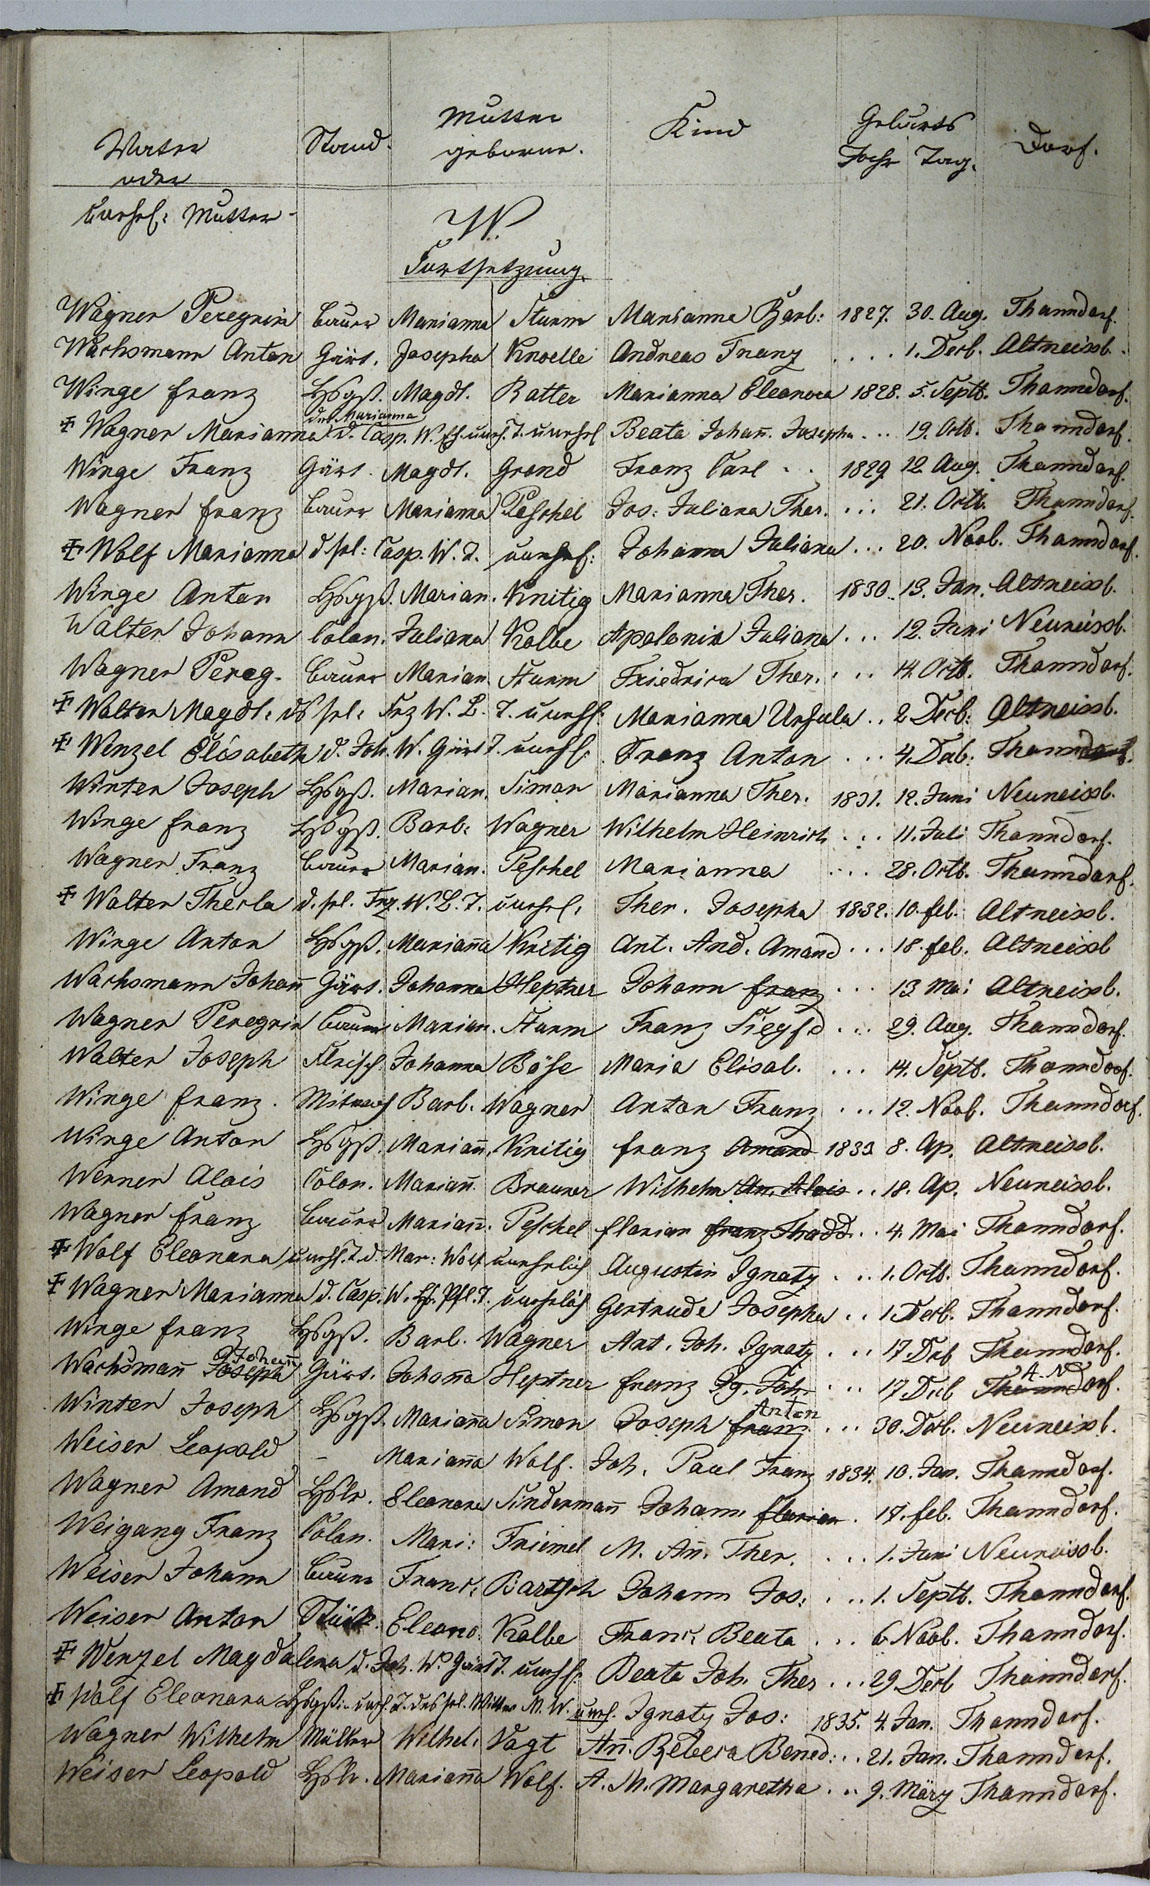 Vater Stand. Mutter Kind Geburts Dorf.
oder geborne. Jahr Tag.
unehel: Mutter
W.
Fortsetzung.
Wagner Peregrin Bauer Marianna Sturm Marianna Barb: 1827. 30. Aug. Thanndorf.
Wachsmann Anton Gärt. Josepha Knoelle Andreas Franz .... 1. Decb. Altneissb.
Winge Franz Hsgß. Magdl. Ratter Marianna Eleonora 1828. 5. Septb. Thanndorf.
des Marianna
Wagner Marianna d. Casp. W. T. unehel Beata Johan̄. Josepha ... 19. Octb. Thanndorf.
Winge Franz Gärt. Magdl. Grond Franz Carl .. 1829. 12. Aug. Thanndorf.
Wagner Franz Bauer Marianna Peschel Jos: Juliana Ther. ... 21. Octb. Thanndorf.
Wolf Marianna d. sel: Casp. W. T. unehel: Johanna Juliana ... 20. Novb. Thanndorf.
Winge Anton Hsgß. Marian. Knitig Marianna Ther. 1830. 13. Jan. Altneissb.
Walter Johann Colon. Juliana Kolbe Apolonia Juliana ... 12. Juni Neuneissb.
Wagner Pereg. Bauer Marian. Sturm Friedrica Ther. ... 14. Octb. Thanndorf.
Walter Magdl. d sel: Frz W. L. T. unehel. Marianna Ursula .. 2. Decb: Altneissb.
Wenzel Elisabeth d. Joh. W. Gärt T. unehel. Franz Anton ... 4. Dcb: Thanndorf.
Winter Joseph Hsgß. Marian. Simon Marianna Ther. 1831. 12. Juni Neuneissb.
Winge Franz Hsgß. Barb. Wagner Wilhelm Heinrich ... 11. Juli Thanndorf.
Wagner Franz Bauer Marian. Peschel Marianna ... 28. Octb. Thanndorf.
Walter Therla d. sel. Frz. W. L. T. unehel. Ther. Josepha 1832. 10. Feb. Altneissb.
Winge Anton Hsgß. Marian̄a Knitig Ant. And. Amand ... 18. Feb. Altneissb
Wachsmann Johan̄ Gärt. Johanna Heptner Johann Franz ... 13 Mai Altneissb.
Wagner Peregrin Bauer Marian. Sturm Franz Siegfd ... 29. Aug. Thanndorf.
Walter Joseph Fleisch. Johanna Böse Maria Elisab. ... 14. Septb. Thanndorf.
Winge Franz. Barb. Wagner Anton Franz ... 12. Novb. Thanndorf.
Winge Anton Hsgß. Marian̄. Knitig Franz Amand 1833 8. Ap. Altneissb.
Werner Alois Colon. Marian̄. Brauner Wilhelm An. Alois .. 18. Ap. Neuneissb.
Wagner Franz Bauer Marian̄. Peschel Florian Franz Thadd. .. 4. Mai Thanndorf.
Wolf Eleonora unehl. T. d. Mar: Wolf unehelich Augustin Ignatz ... 1. Octb. Thanndorf.
Wagner Marianna d. Casp. W. T. unehelich Gertrude Josepha .. 1. Decb. Thanndorf.
Winge Franz Hsgß. Barb. Wagner Ant. Joh. Ignatz ... 17. Dcb Thanndorf.
Johan̄ A. N
Wachsman̄ Joseph Gärt. Johan̄a Heptner Franz Ig. Joh. ... 17. Dcb Thanndorf.
Anton
Winter Joseph Hsgß. Marian̄a Simon Joseph Franz ... 30. Dcb. Neuneissb.
Weiser Leopold - Marian̄a Wolf. Joh. Paul Franz 1834. 10. Jan. Thanndorf.
Wagner Amand Hslr. Eleonora Linderman̄ Johann Florian . 17. Feb. Thanndorf.
Weigang Franz Colon. Mari: Friemel M. An̄. Ther. ... 1. Juni Neuneissb.
Weiser Johann Bauer Franc. Bartsch Johann Jos: ... 1. Septb. Thanndorf.
Weiser Anton Eleono. Kolbe Franc. Beata ... 6 Novb. Thanndorf.
Wenzel Magdalena d. Joh. W. Gärt T. unehel. Beata Joh. Ther ... 29 Decb Thanndorf.
Wolf Eleonora Hsgß. uneh. T. des sel. M. W. uneh. Ignatz Jos: 1835. 4. Jan. Thanndorf.
Wagner Wilhelm Müller Wilhel. Vogt An̄. Rebeca Bened: .. 21. Jan. Thanndorf.
Weiser Leopold Hslr. Marian̄a Wolf. A. M. Margaretha ... 9. März Thanndorf.